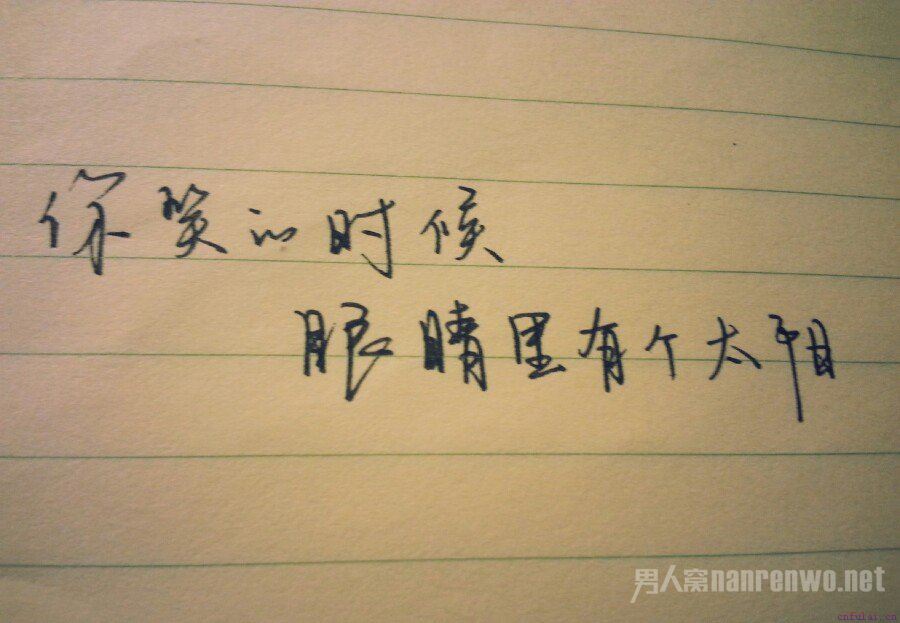 你笑的时候
眼睛里有个太阳
男人窝nanrenwo.net
cnfulai.cn